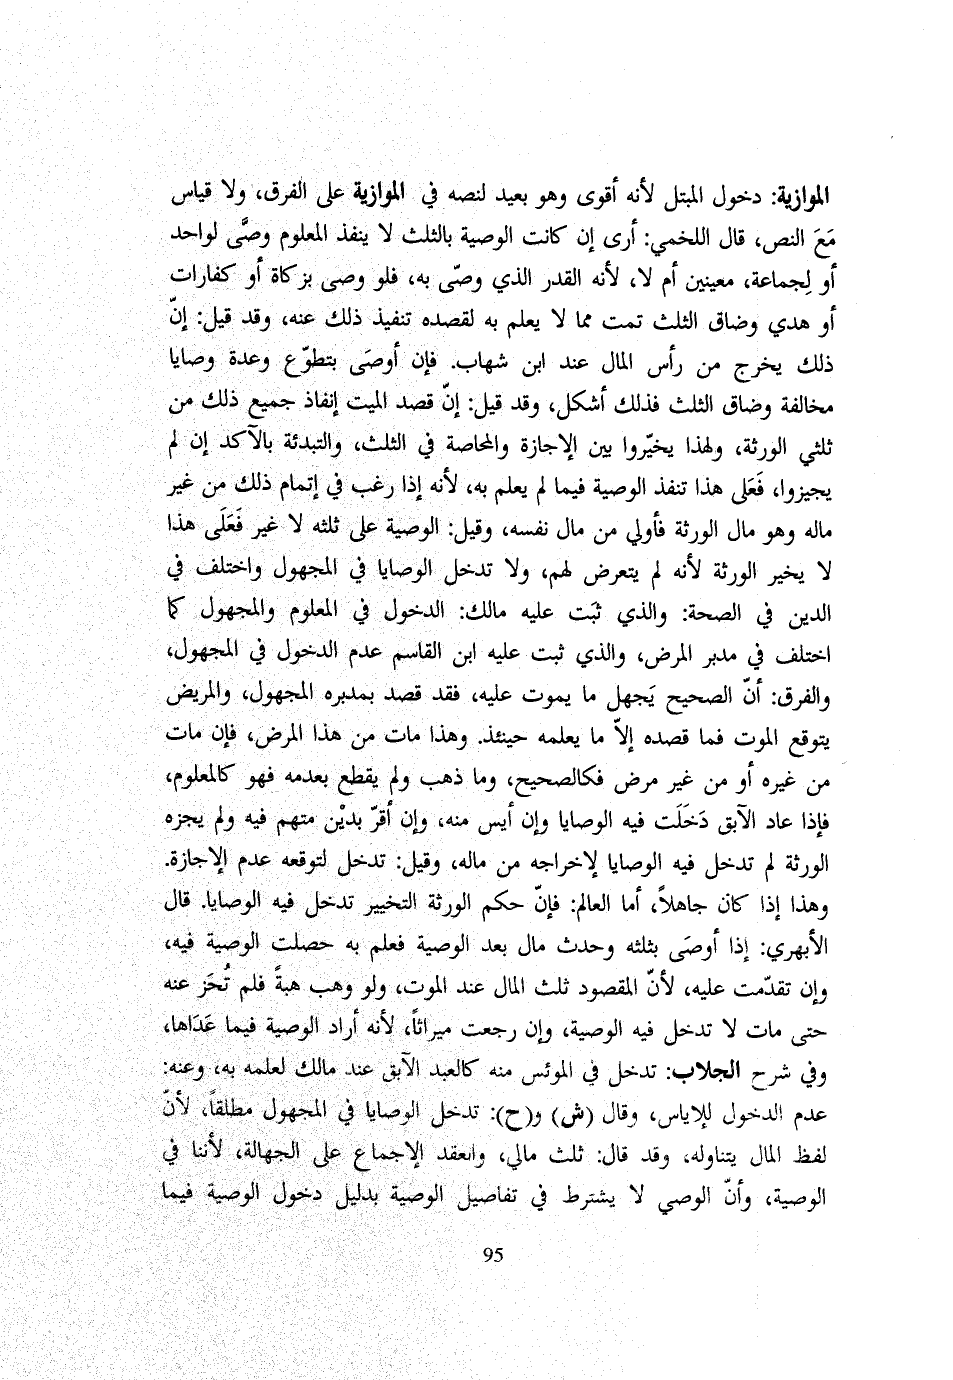 الموازية: دخول المبتل لأنه أقوى وهو بعيد لنصه في الموازية على الفرق، ولا قياس
مَعَ النص، قال اللخمي: أرى إن كانت الوصية بالثلث لا ينفذ المعلوم وصَّى لواحد
أو لِجماعة، معينين أم لا، لأنه القدر الذي وصّى به، فلو وصى بزكاة أو كفارات
أو هدي وضاق الثلث تمت مما لا يعلم به لقصده تنفيذ ذلك عنه، وقد قيل: إنّ
ذلك يخرج من رأس المال عند ابن شهاب. فإن أوصَى بتطوّع وعدة وصايا
مخالفة وضاق الثلث فذلك أشكل، وقد قيل: إنّ قصد الميت إنفاذ جميع ذلك من
ثلثي الورثة، ولهذا يخيّروا بين الإجازة والمحاصة في الثلث، والتبدئة بالآكد إن لم
يجيزوا، فَعَلى هذا تنفذ الوصية فيما لم يعلم به، لأنه إذا رغب في إتمام ذلك من غير
ماله وهو مال الورثة فأولي من مال نفسه، وقيل: الوصية على ثلثه لا غير فَعَلَى هذا
لا يخير الورثة لأنه لم يتعرض لهم، ولا تدخل الوصايا في المجهول واختلف في
الدين في الصحة: والذي ثبَت عليه مالك: الدخول في المعلوم والمجهول كما
اختلف في مدبر المرض، والذي ثبت عليه ابن القاسم عدم الدخول في المجهول،
والفرق: أنّ الصحيح يَجهل ما يموت عليه، فقد قصد بمدبره المجهول، والمريض
يتوقع الموت فما قصده إلاّ ما يعلمه حينئذ. وهذا مات من هذا المرض، فإن مات
من غيره أو من غير مرض فكالصحيح، وما ذهب ولم يقطع بعدمه فهو كالمعلوم،
فإذا عاد الآبق دَخَلَت فيه الوصايا وإن أيس منه، وإن أقرّ بديْن متهم فيه ولم يجزه
الورثة لم تدخل فيه الوصايا لإخراجه من ماله، وقيل: تدخل لتوقعه عدم الإجازة.
وهذا إذا كان جاهلاً، أما العالم: فإنّ حكم الورثة التخيير تدخل فيه الوصايا. قال
الأبهري: إذا أوصَى بثلثه وحدث مال بعد الوصية فعلم به حصلت الوصية فيه،
وإن تقدّمت عليه، لأنّ المقصود ثلث المال عند الموت، ولو وهب هبةً فلم تُحَز عنه
حتى مات لا تدخل فيه الوصية، وإن رجعت ميراثاً، لأنه أراد الوصية فيما عَدَاها،
وفي شرح الجلاب: تدخل في الموئس منه كالعبد الآبق عند مالك لعلمه به، وعنه:
عدم الدخول للإياس، وقال (ش) و(ح): تدخل الوصايا في المجهول مطلقاً، لأنّ
لفظ المال يتناوله، وقد قال: ثلث مالي، وانعقد الإجماع على الجهالة، لأننا في
الوصية، وأنّ الوصي لا يشترط في تفاصيل الوصية بدليل دخول الوصية فيما
95